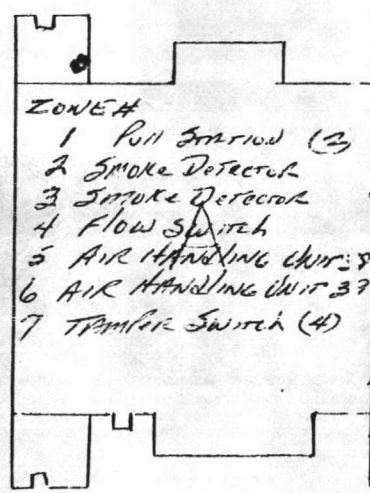 ZONE#
1 Pull Station (2)
2 Smoke Detector
3 Smoke Detector
4 Flow Switch
5 AIR HANDLING UNIT
6 AIR HANDLING UNIT 37
7 TAMPER Switch (4)
A